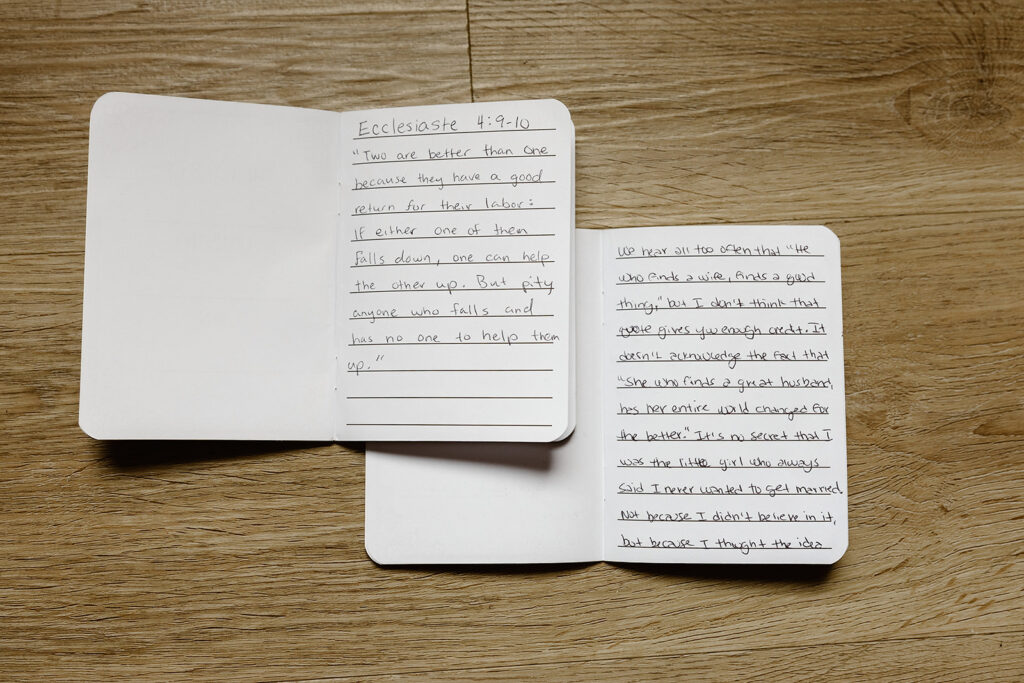 Ecclesiaste 4:9-10
"Two are better than one
because they have a good
return for their labor:
If either one of them
falls down, one can help
the other up. But pity
anyone who falls and
has no one to help them
up."
We hear all too often that "He
who finds a wife, finds a good
thing," but I don't think that
quote gives you enough credit. It
doesn't acknowledge the fact that
"She who finds a great husband,
has her entire world changed for
the better." It's no secret that I
was the little girl who always
said I never wanted to get married.
Not because I didn't believe in it,
but because I thought the idea